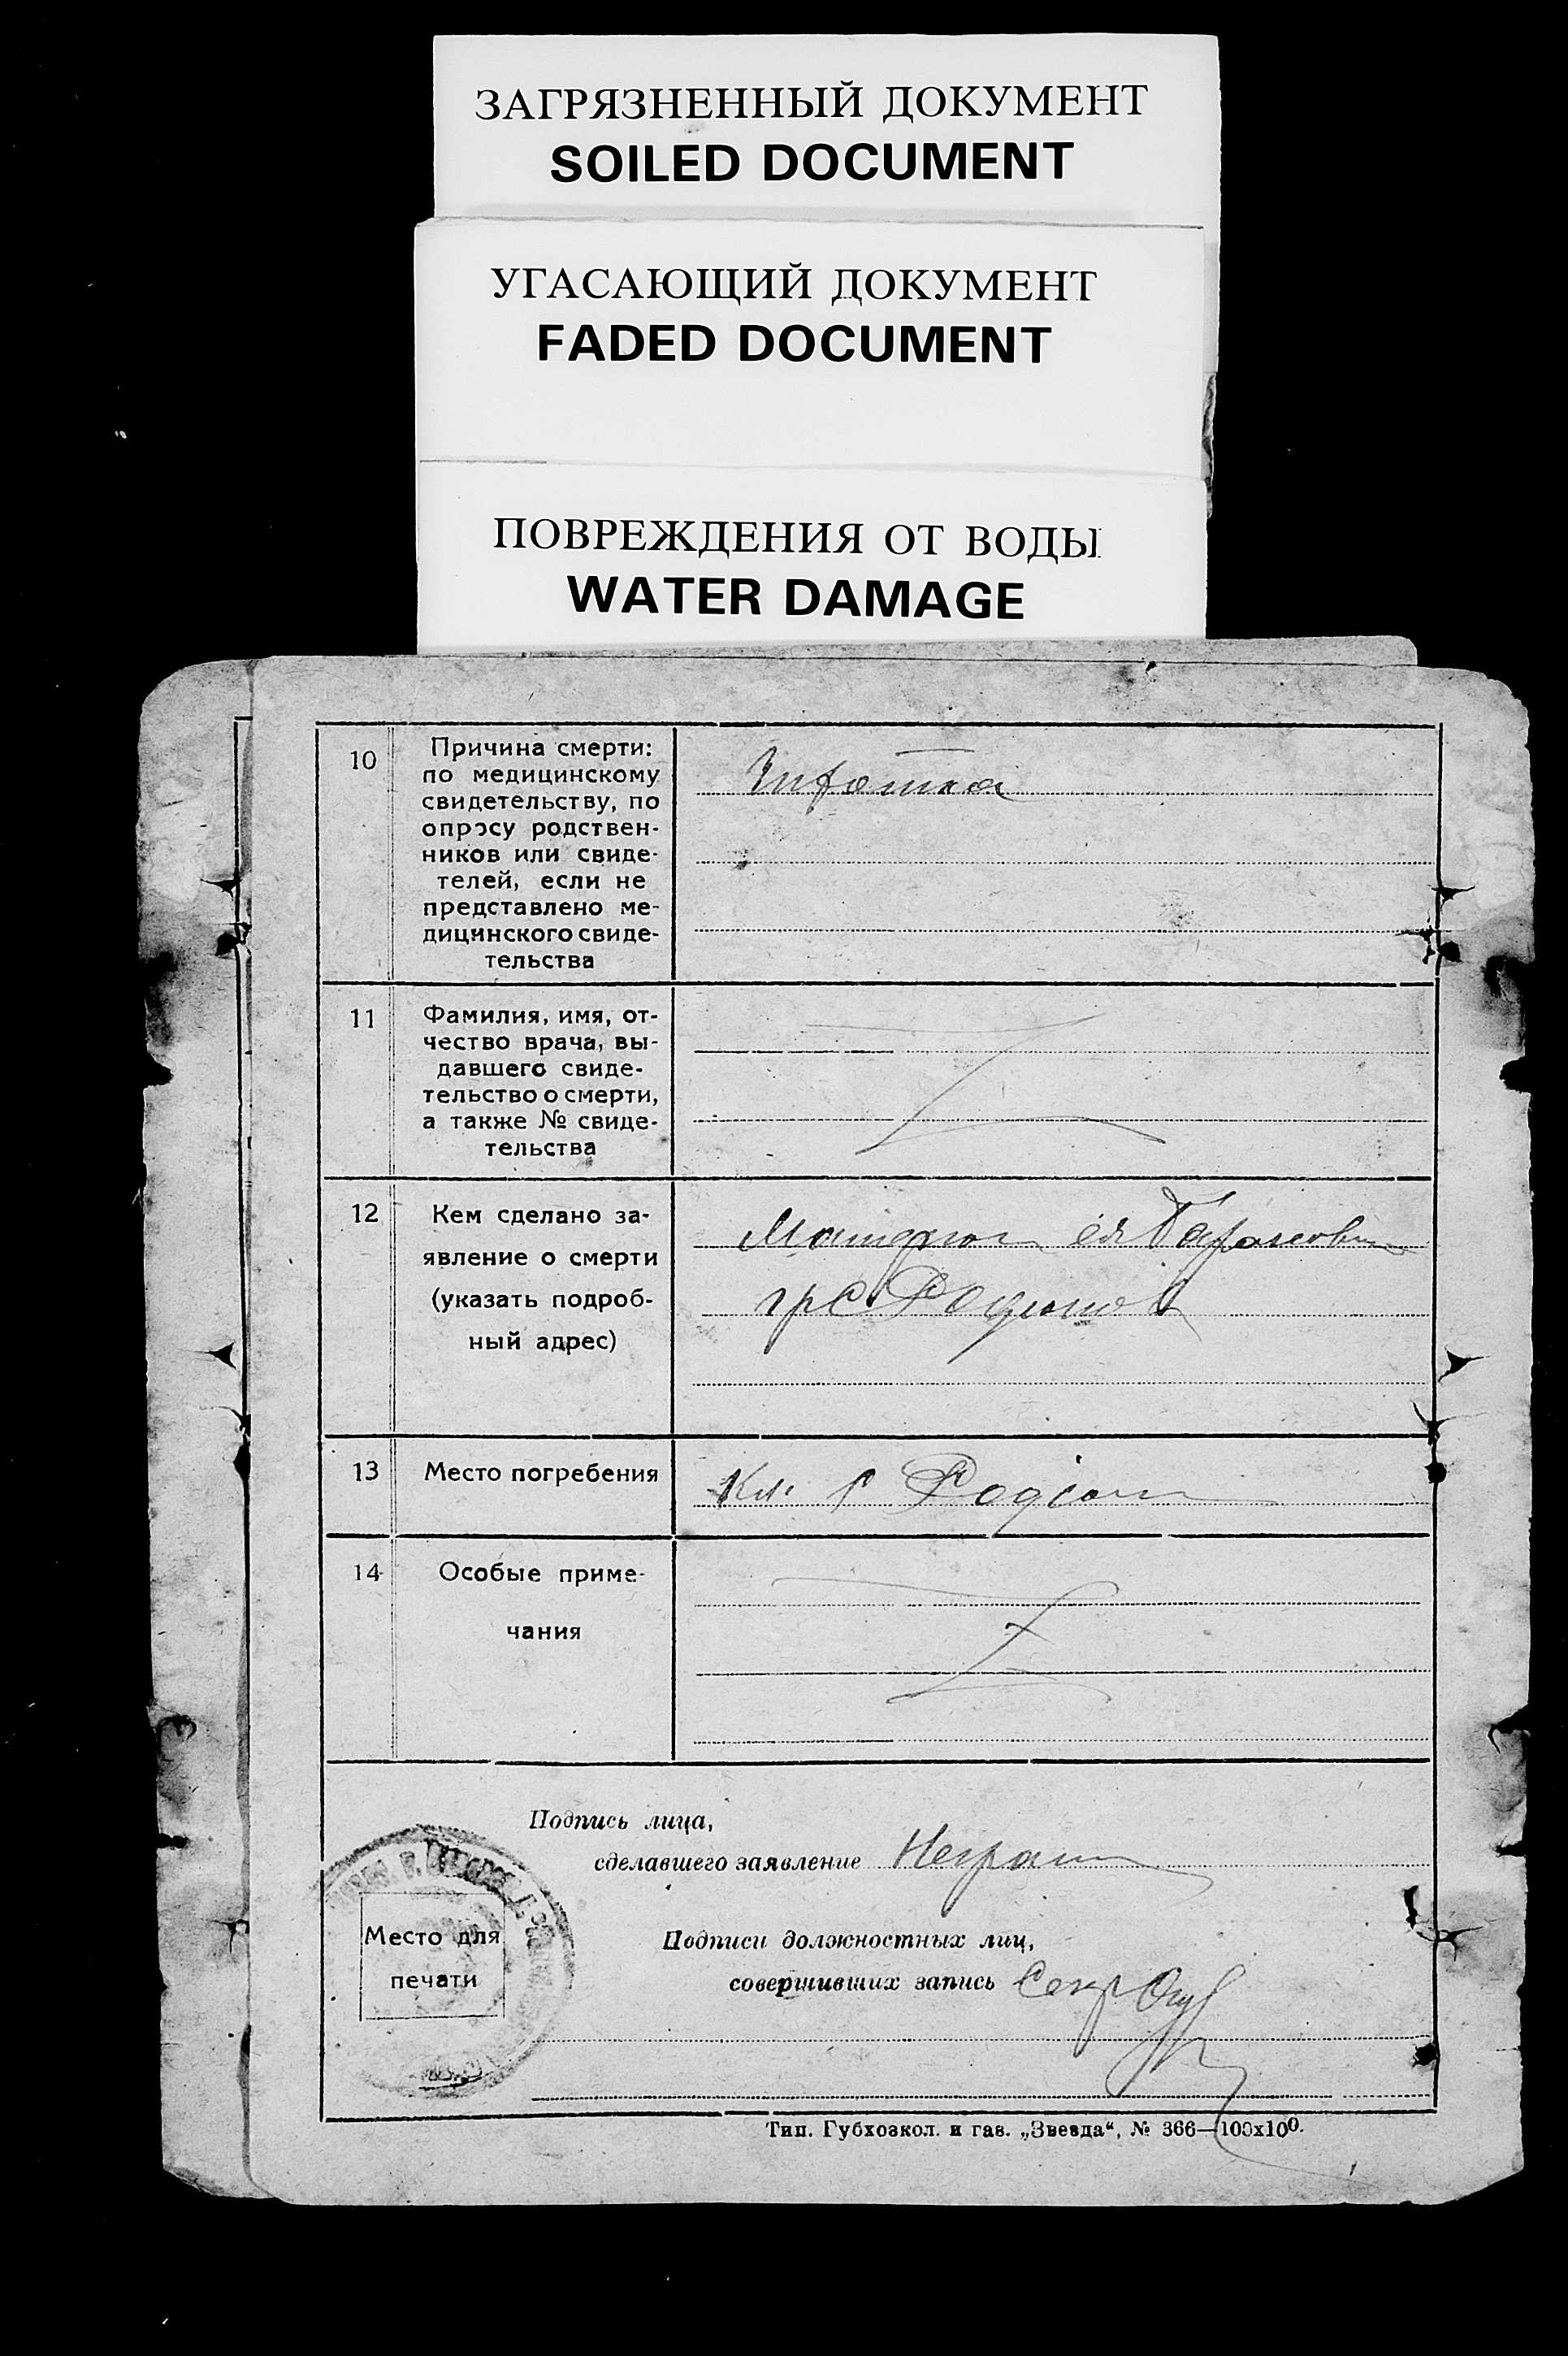 ЗАГРЯЗНЕННЫЙ ДОКУМЕНТ
SOILED DOCUMENT
УГАСАЮЩИЙ ДОКУМЕНТ
FADED DOCUMENT
ПОВРЕЖДЕНИЯ ОТ ВОДЫ
WATER DAMAGE
10
Причина смерти:
по медицинскому
свидетельству, по
опросу родствен-
ников или свиде-
телей, если не
представлено ме-
дицинского свиде-
тельства
11
Фамилия, имя, от-
чество врача, вы-
давшего свиде-
тельство о смерти,
а также № свиде-
тельства
12
Кем сделано за-
явление о смерти
(указать подроб-
ный адрес)
13
Место погребения
14
Особые приме-
чания
Подпись лица,
сделавшего заявление Неграм
Место для
печати
Подписи должностных лиц,
совершивших запись Секр
Тип. Губхозкол. и газ. „Звезда“, № 366—100х100.